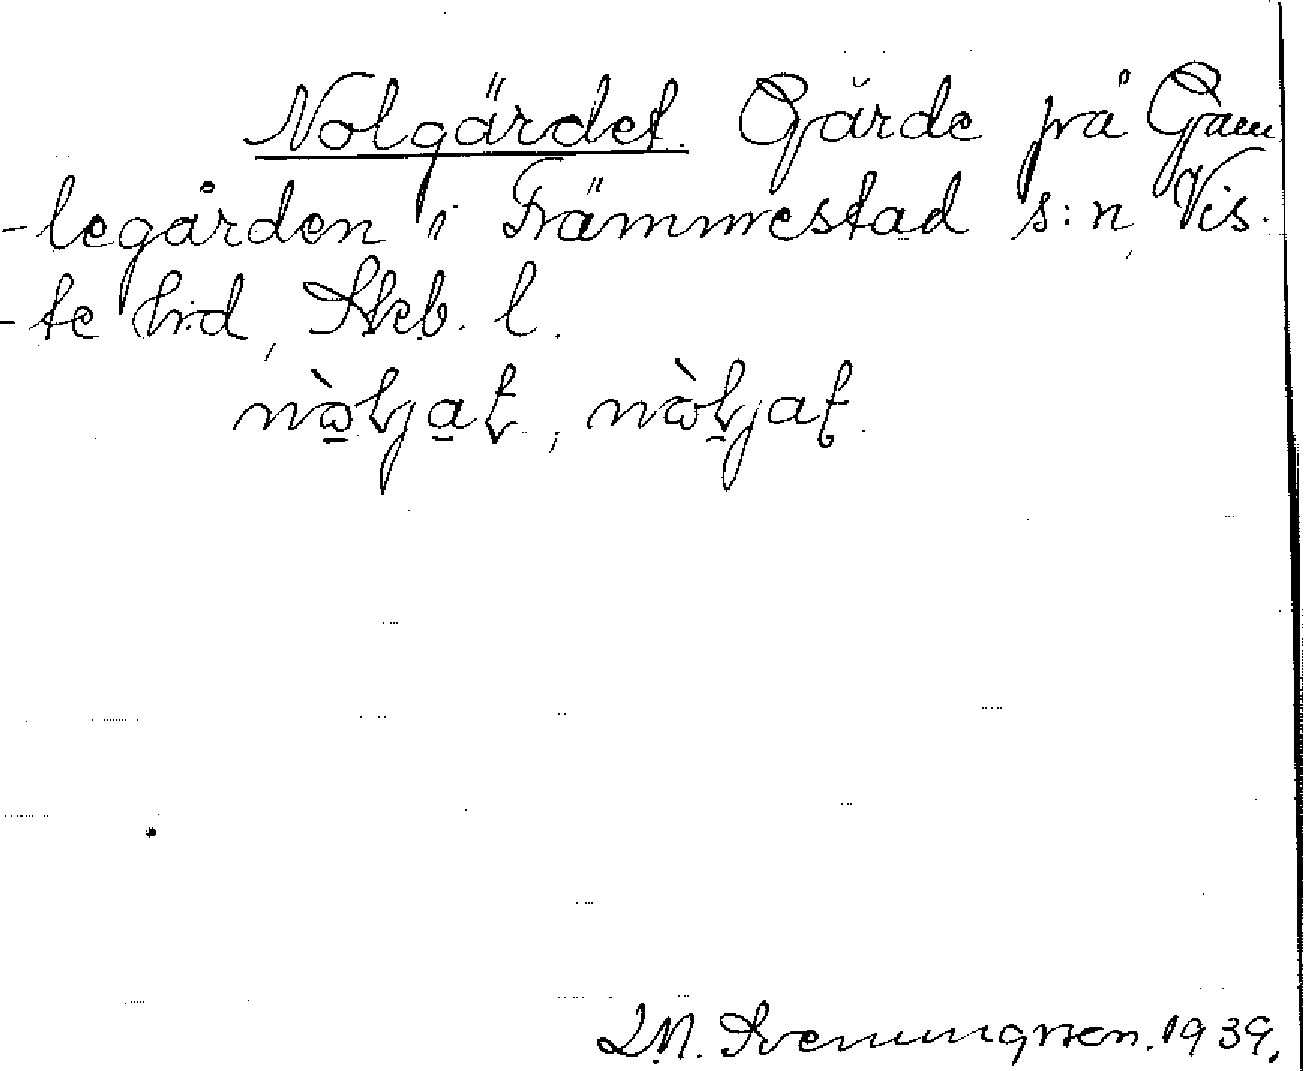 Nolgärdet. Gärde på Gam
-legården i Främmestad s:n, Vis-
-te hrd, Skb. l.
nòljat, nòljat.
L.M. Svenungsson. 1939.